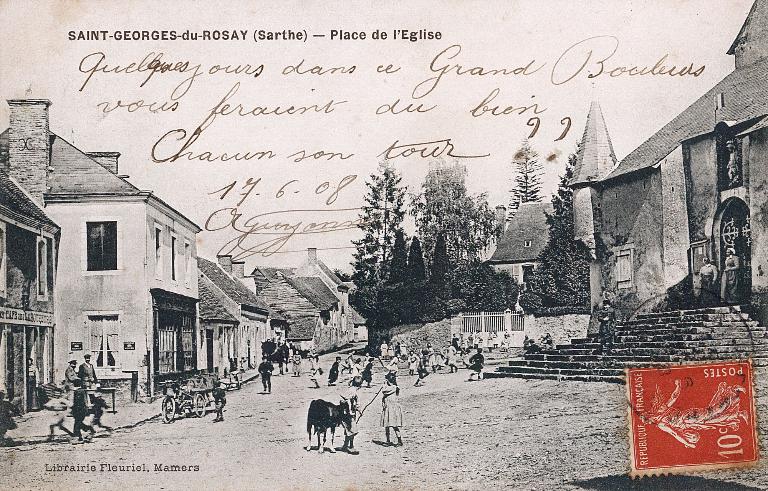 SAINT-GEORGES-du-ROSAY (Sarthe) — Place de l'Eglise
Quelques jours dans ce Grand Boulevis
vous feraient du bien
Chacun son tour
17.6.08
Librairie Fleuriel, Mamers
RÉPUBLIQUE FRANÇAISE
POSTES
10c